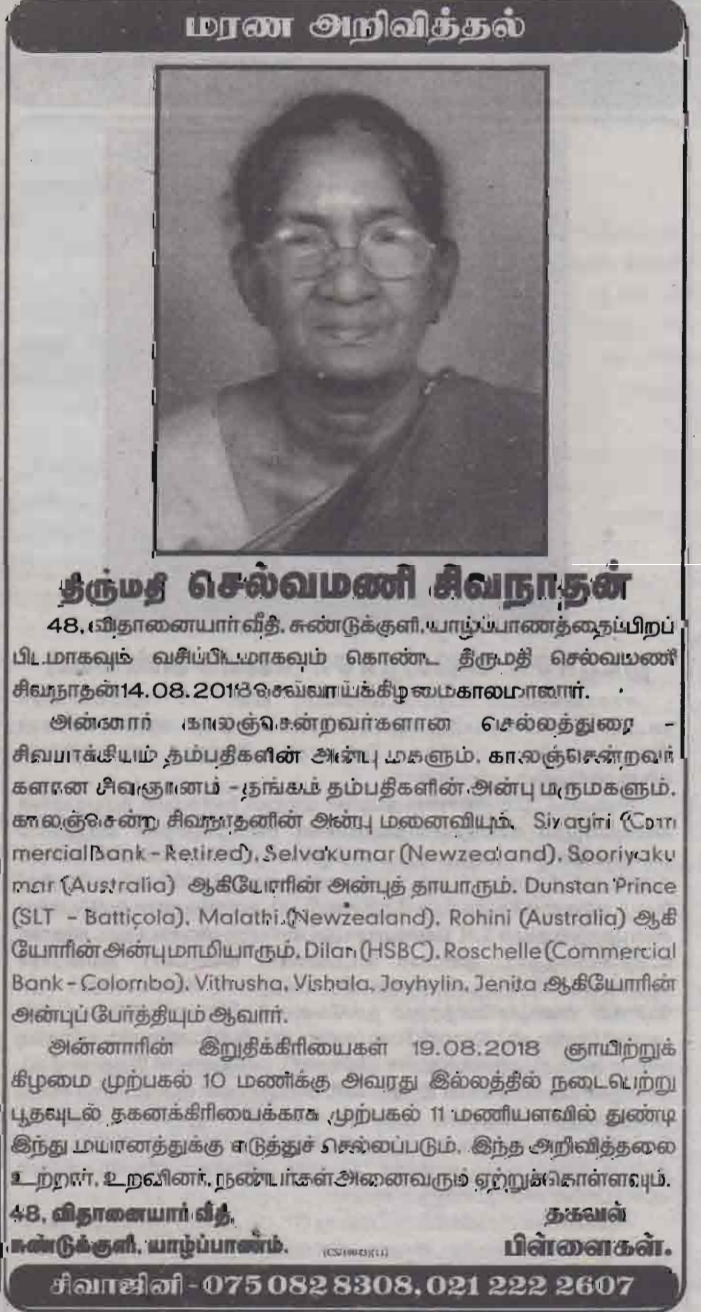 மரண அறிவித்தல்
திருமதி செல்வமணி சிவநாதன்
48, விதானையார் வீதி, சுண்டுக்குளி, யாழ்ப்பாணத்தைப் பிறப்
பிடமாகவும் வசிப்பிடமாகவும் கொண்ட திருமதி செல்வமணி
சிவநாதன் 14.08.2018 செவ்வாய்க்கிழமை காலமானார்.
அன்னார் காலஞ்சென்றவர்களான செல்லத்துரை -
சிவபாக்கியம் தம்பதிகளின் அன்பு மகளும், காலஞ்சென்றவர்
களான சிவஞானம் - தங்கம் தம்பதிகளின் அன்பு மருமகளும்,
காலஞ்சென்ற சிவநாதனின் அன்பு மனைவியும், Sivagini (Com
mercial Bank - Retired), Selvakumar (Newzealand), Sooriyaku
mar (Australia) ஆகியோரின் அன்புத் தாயாரும், Dunstan Prince
(SLT - Batticola), Malathi (Newzealand), Rohini (Australia) ஆகி
யோரின் அன்பு மாமியாரும், Dilan (HSBC), Roschelle (Commercial
Bank - Colombo), Vithusha, Vishala, Jayhylin, Jenita ஆகியோரின்
அன்புப் பேர்த்தியும் ஆவார்.
அன்னாரின் இறுதிக்கிரியைகள் 19.08.2018 ஞாயிற்றுக்
கிழமை முற்பகல் 10 மணிக்கு அவரது இல்லத்தில் நடைபெற்று
பூதவுடல் தகனக்கிரியைக்காக முற்பகல் 11 மணியளவில் துண்டி
இந்து மயானத்துக்கு எடுத்துச் செல்லப்படும். இந்த அறிவித்தலை
உற்றார், உறவினர், நண்பர்கள் அனைவரும் ஏற்றுக்கொள்ளவும்.
48, விதானையார் வீதி, தகவல்
சுண்டுக்குளி, யாழ்ப்பாணம். பிள்ளைகள்.
சிவாஜினி - 075 082 8308, 021 222 2607